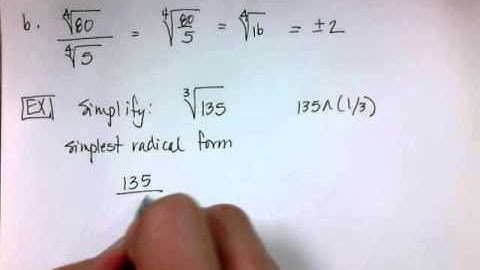 b. ∜80 / ∜5 = ∜(80/5) = ∜16 = ±2
EX. Simplify: ∛135 135^(1/3)
simplest radical form
135